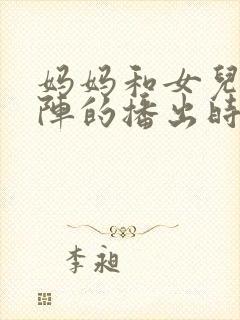 妈妈和女兒
陣的播出時
李昶